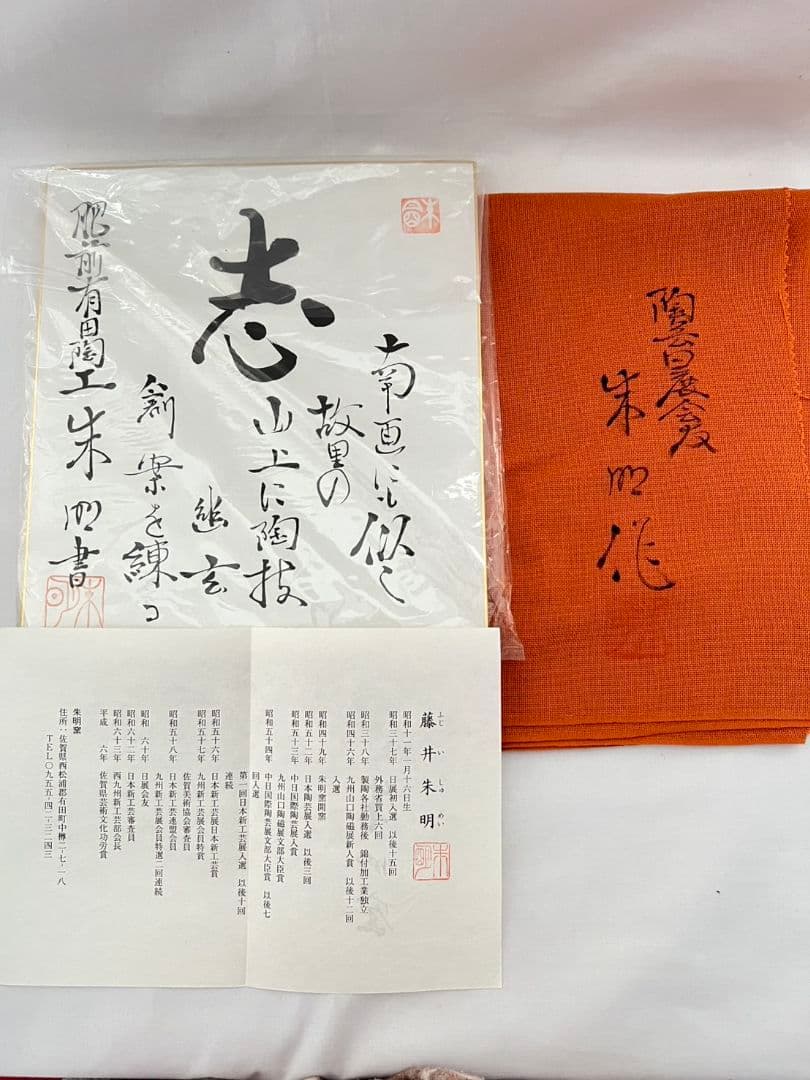 志
南画にも似て
故里の
山上に陶技
幽玄
創案を練る
肥前有田陶工朱明書
朱明作
ふじ い しゅ めい
藤井朱明
昭和十一年一月十六日生
昭和三十七年 日展初入選 以後十五回
外務省買上六回
昭和三十八年 製陶各社勤務後 錦付加工業独立
昭和四十六年 九州山口陶磁展新人賞 以後十二回
入選
昭和四十九年 朱明窯開窯
昭和五十二年 日本陶芸展入選 以後三回
昭和五十三年 中日国際陶芸展入賞
九州山口陶磁展文部大臣賞
昭和五十四年 中日国際陶芸展文部大臣賞 以後七
回入選
第一回日本新工芸展入選 以後十回
連続
昭和五十六年 日本新工芸展日本新工芸賞
昭和五十七年 九州新工芸展会員特賞
佐賀美術協会審査員
昭和五十八年 日本新工芸連盟会員
九州新工芸展会員特選二回連続
昭和 六十年 日展会友
昭和六十二年 日本新工芸審査員
昭和六十三年 西九州新工芸部会長
平成 六年 佐賀県芸術文化功労賞
朱明窯
住所:佐賀県西松浦郡有田町中樽二-七-一八
TEL〇九五五-四二-三二四三